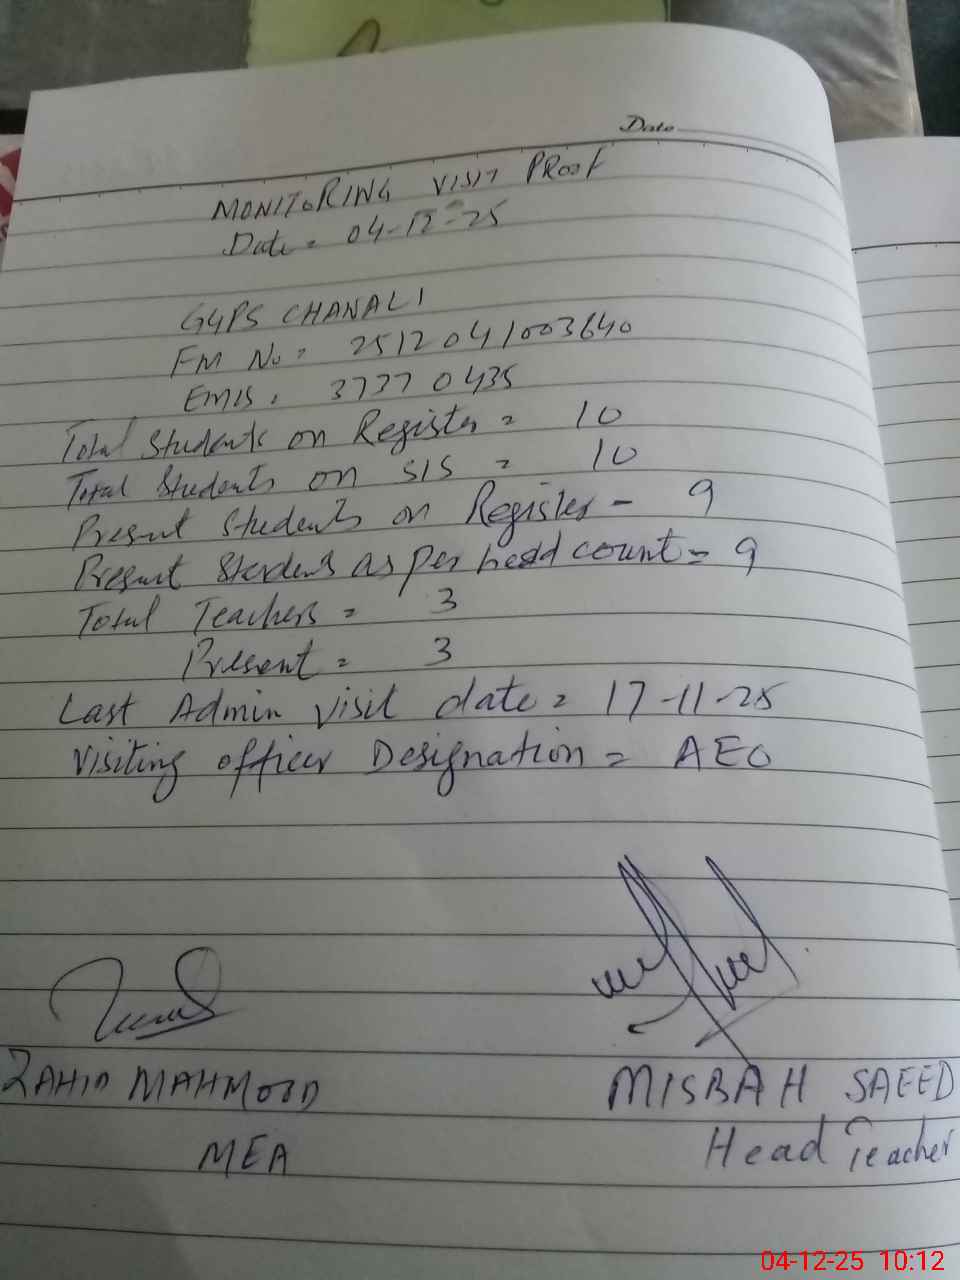 Date
MONITORING VISIT PROOF
Date = 04-12-25
GGPS CHANALI
FM No = 2512041003640
EMIS = 37370435
Total Students on Register = 10
Total Students on SIS = 10
Present Students on Register - 9
Present Students as per head count = 9
Total Teachers = 3
Present = 3
Last Admin visit date = 17-11-25
Visiting officer Designation = AEO
ZAHID MAHMOOD
MISBAH SAEED
MEA
Head Teacher
04-12-25 10:12